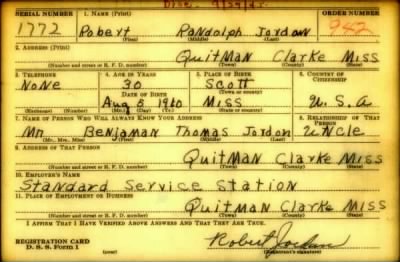 Disc. 9/29/45
SERIAL NUMBER 1. NAME (Print) ORDER NUMBER
1772 Robert Randolph Jordon 942
(First) (Middle) (Last)
2. ADDRESS (Print)
QuitMan Clarke Miss
(Number and street or R. F. D. number) (Town) (County) (State)
3. TELEPHONE 4. AGE IN YEARS 5. PLACE OF BIRTH 6. COUNTRY OF CITIZENSHIP
NoNe 30 Scott
DATE OF BIRTH (Town or county)
Aug 5 1910 Miss U.S.A
(Exchange) (Number) (Mo.) (Day) (Yr.) (State or country)
7. NAME OF PERSON WHO WILL ALWAYS KNOW YOUR ADDRESS 8. RELATIONSHIP OF THAT PERSON
Mr Benjaman Thomas Jordon uNcle
(Mr., Mrs., Miss) (First) (Middle) (Last)
9. ADDRESS OF THAT PERSON
QuitMan Clarke Miss
(Number and street or R. F. D. number) (Town) (County) (State)
10. EMPLOYER'S NAME
Standard Service Station
11. PLACE OF EMPLOYMENT OR BUSINESS
QuitMan Clarke Miss
(Number and street or R. F. D. number) (Town) (County) (State)
I AFFIRM THAT I HAVE VERIFIED ABOVE ANSWERS AND THAT THEY ARE TRUE.
REGISTRATION CARD
D. S. S. Form 1
Robert Jordon
(Registrant's signature)